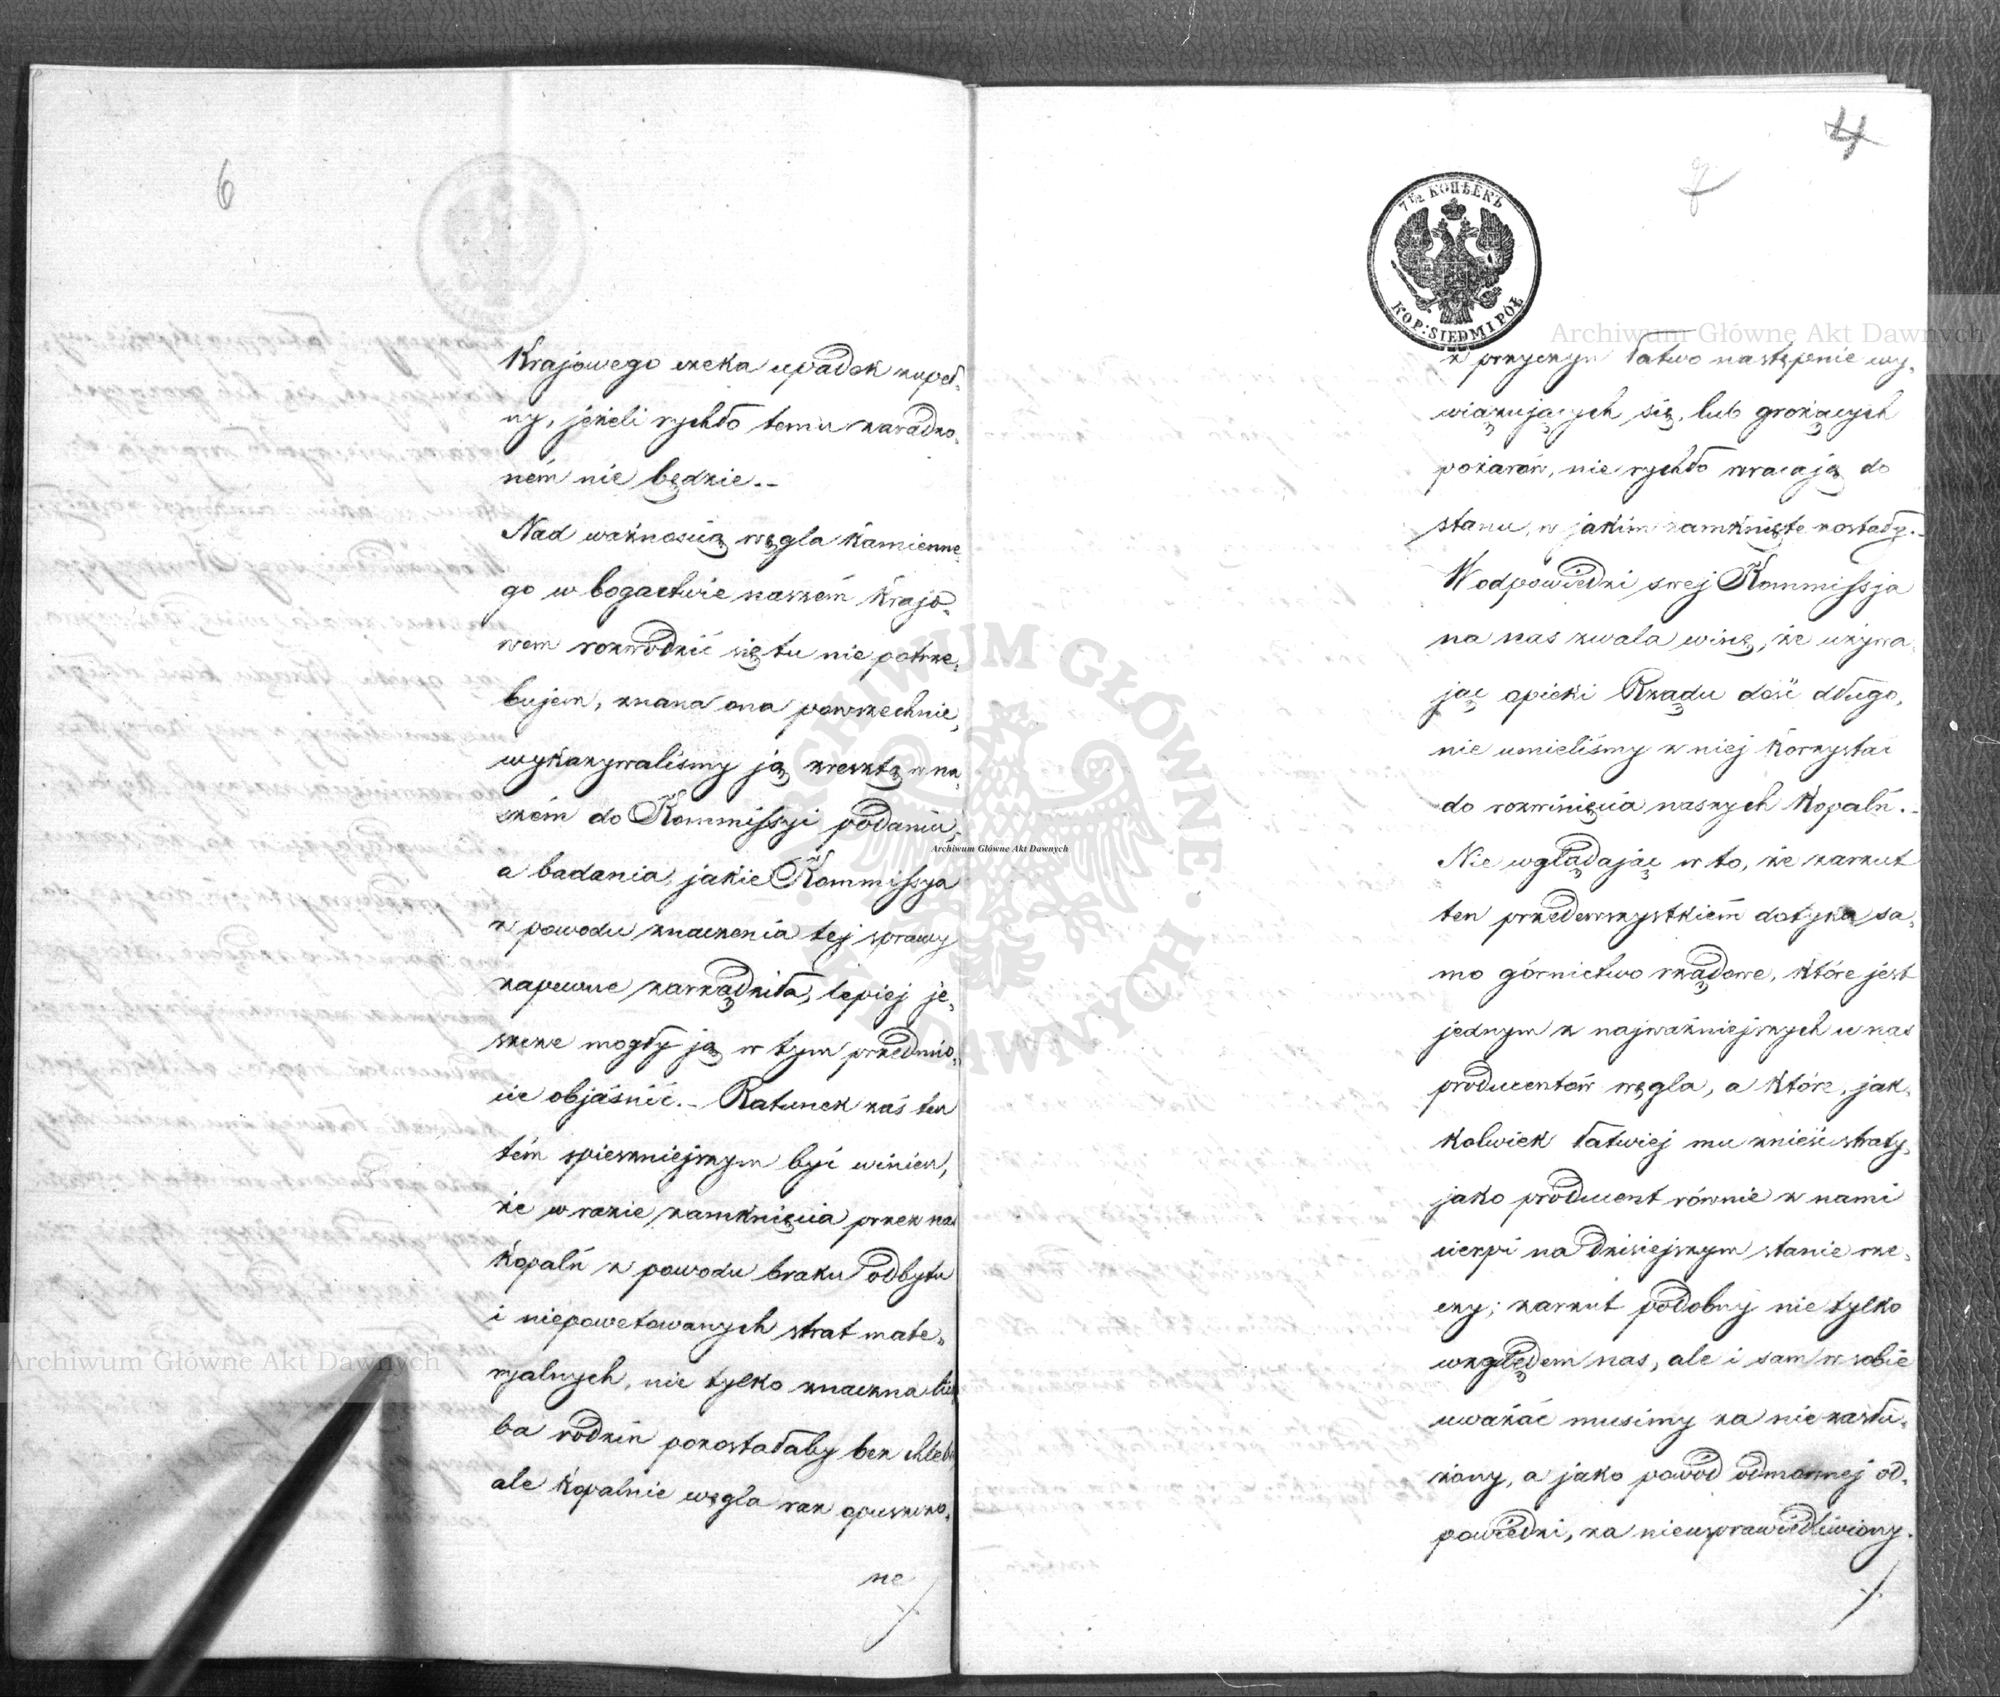 6
Krajowego czeka upadek zupeł-
ny, jeżeli rychło temu zaradzo-
ném nie będzie.-
Nad ważnością węgla kamienne-
go w bogactwie naszém krajo-
wem rozwodzić się tu nie potrze-
bujem, znana ona powszechnie,
wykazywaliśmy ją zresztą w na-
szém do Kommissyi podaniu,
a badania, jakie Kommissya
z powodu znaczenia tej sprawy
zapewne zarządziła, lepiej je-
szcze mogły ją w tym przedmio-
cie objaśnić.- Ratunek zaś ten
tém spieszniejszym być winien,
że w razie zamknięcia przez nas
kopalń z powodu braku odbytu
i niepowetowanych strat mate-
ryalnych, nie tylko znaczna licz
ba rodzin pozostałaby bez chleba
ale kopalnie węgla raz opuszczo-
ne
4
7
7 1/2 КОПѢЕКЪ
KOP: SIEDM I PÓŁ
z przyczyn łatwo następnie wy-
wiązujących się, lub grożących
pożarów, nie rychło wracają do
stanu, w jakim zamknięte zostały.-
W odpowiedzi swej Kommissja
na nas zwala winę, że używa-
jąc opieki Rządu dość długo,
nie umieliśmy z niej korzystać
do rozwinięcia naszych kopalń.-
Nie wglądając w to, że zarzut
ten przedewszystkiém dotyka sa-
mo górnictwo rządowe, które jest
jednym z najważniejszych u nas
producentów węgla, a które, jak-
kolwiek łatwiej mu znieść straty,
jako producent równie z nami
cierpi na dzisiejszym stanie rze-
czy; zarzut podobny nie tylko
względem nas, ale i sam w sobie
uważać musimy za nie zasłu-
żony, a jako powód odmownej od-
powiedzi, za nieusprawiedliwiony.
Archiwum Główne Akt Dawnych
Archiwum Główne Akt Dawnych
Archiwum Główne Akt Dawnych
ARCHIWUM GŁÓWNE AKT DAWNYCH